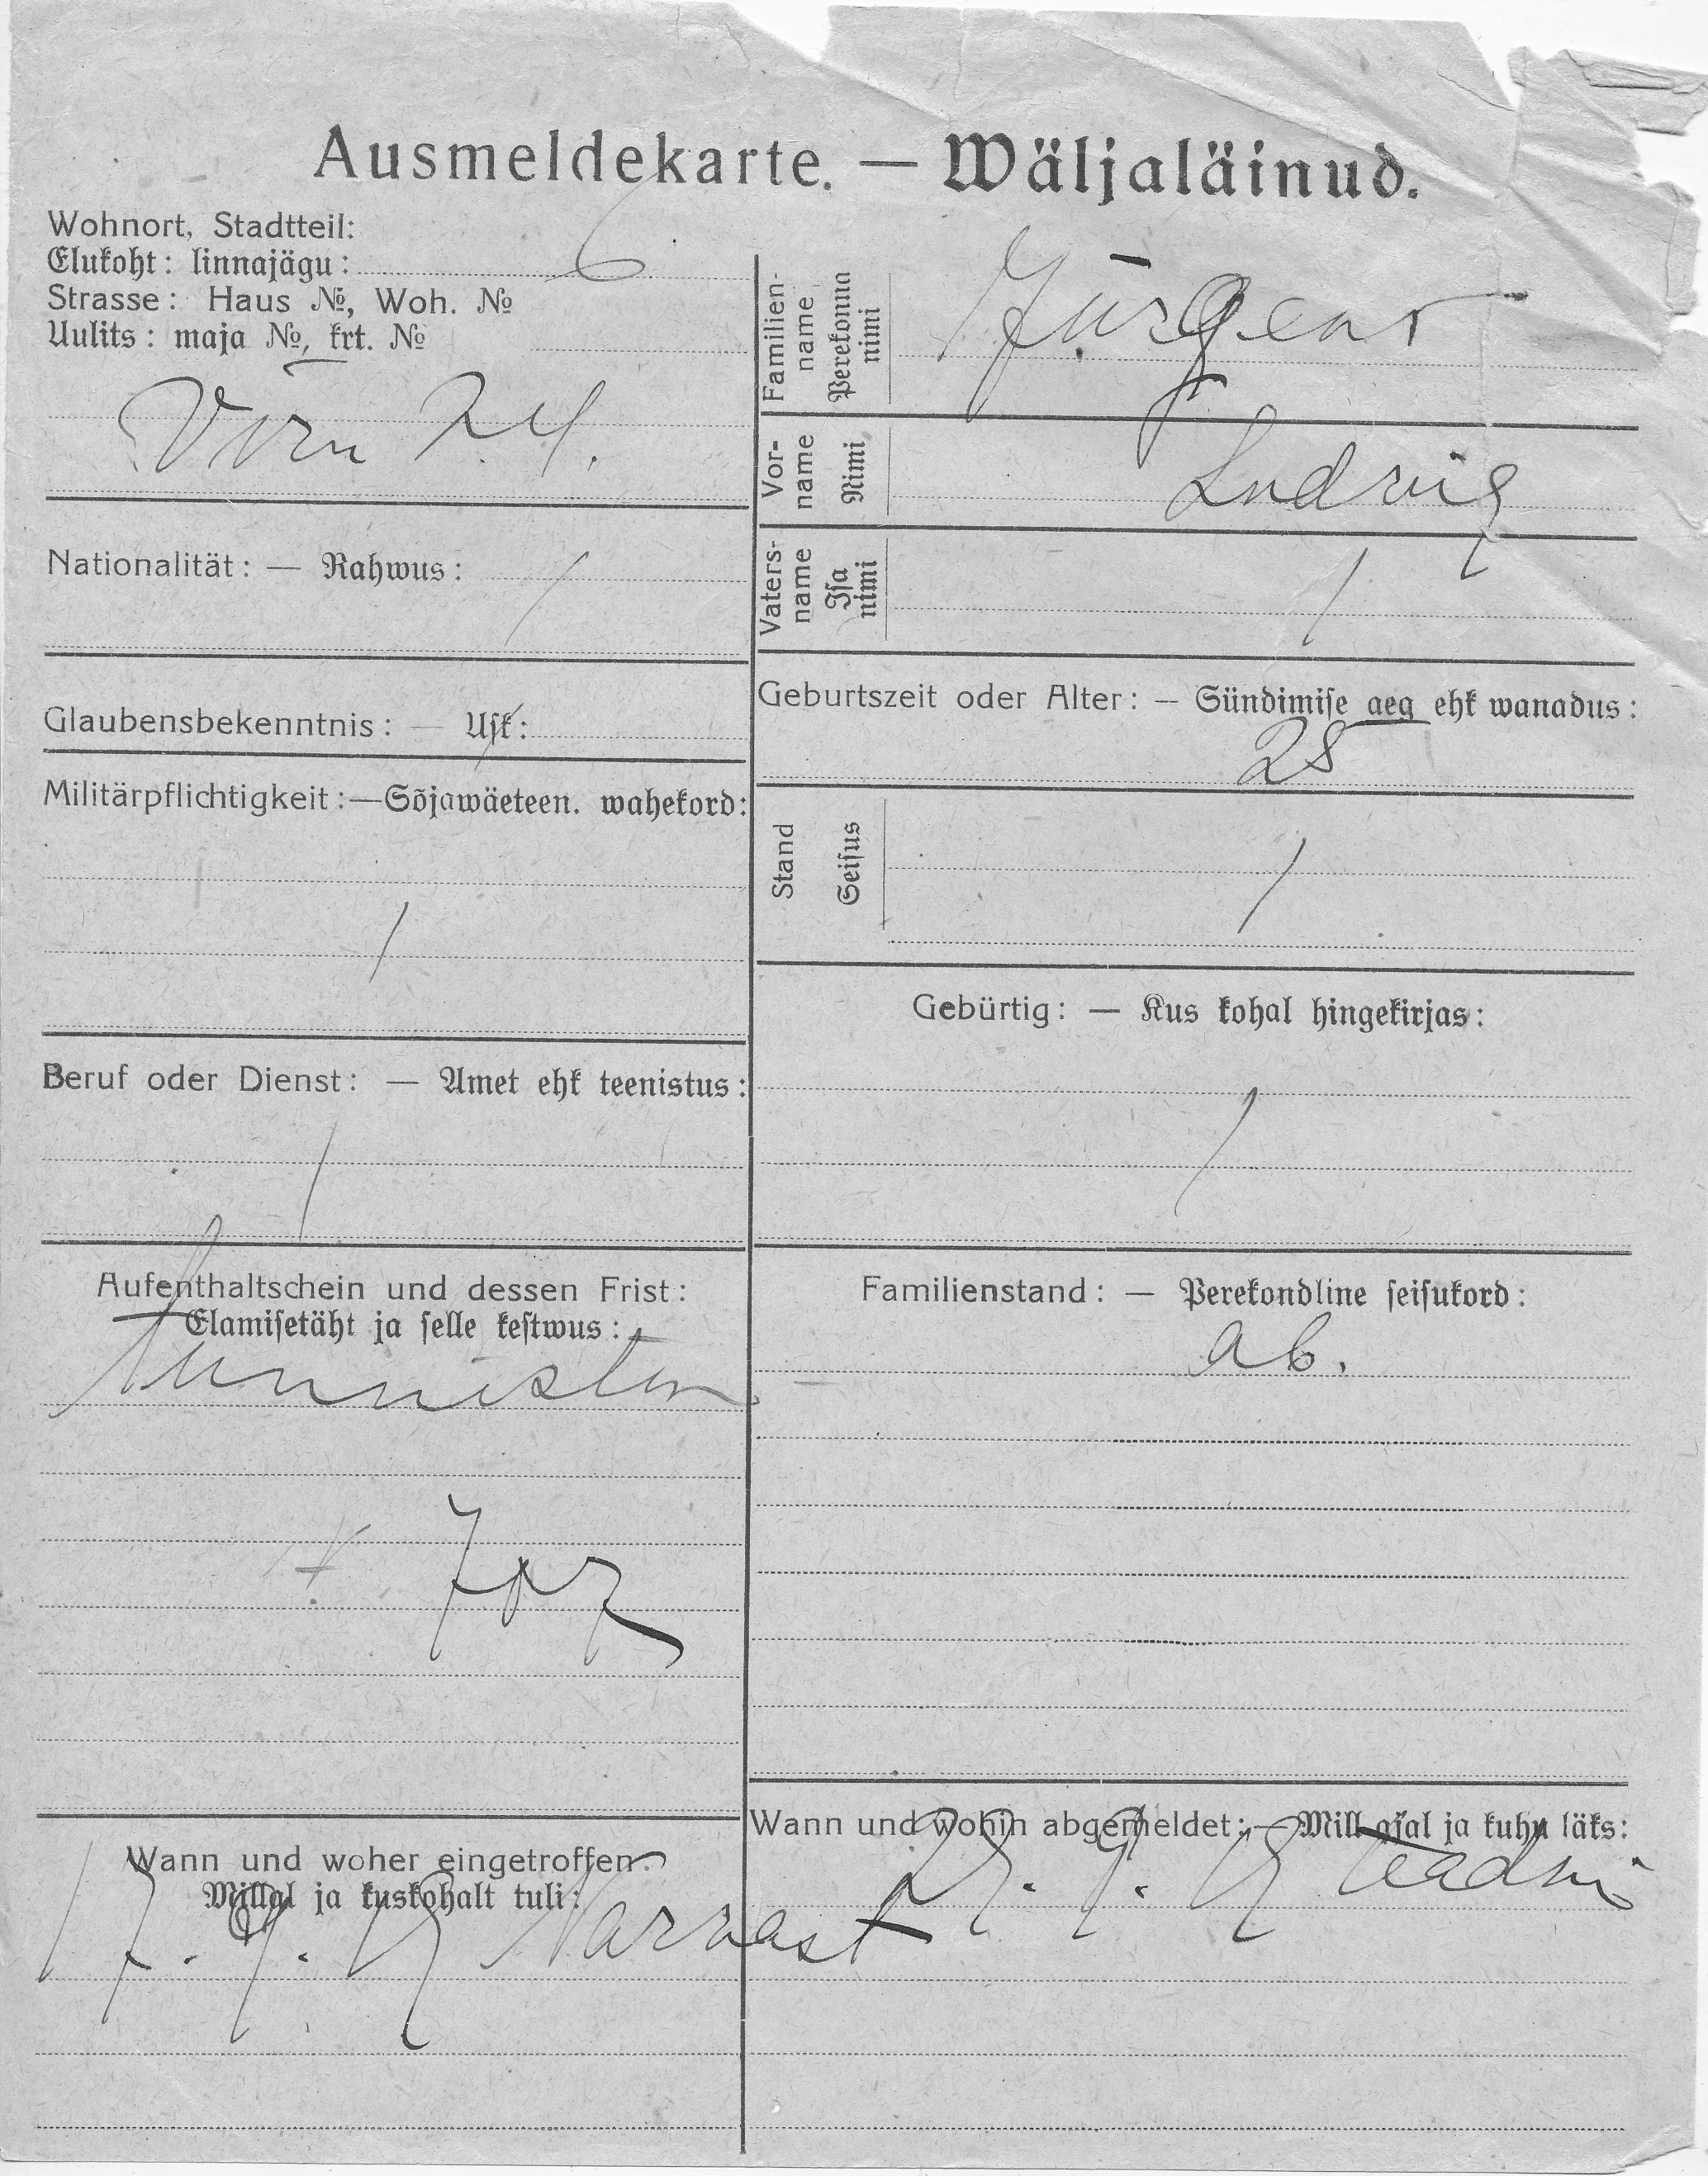 Ausmeldekarte. — Wäljaläinud.
Wohnort, Stadtteil:
Elukoht: linnajägu: 6
Strasse: Haus №, Woh. №
Uulits: maja №, krt. №
Nationalität: — Rahwus: /
Glaubensbekenntnis: — Usk: /
Militärpflichtigkeit:—Sõjawäeteen. wahekord:
/
Beruf oder Dienst: — Amet ehk teenistus:
/
Aufenthaltschein und dessen Frist:
Elamisetäht ja selle kestwus:
Wann und woher eingetroffen:
Millal ja kuskohalt tuli:
Narvast
Familien-
name
Perekonna
nimi
Jürgens
Vor-
name
Nimi
Ludvig
Vaters-
name
Isa
nimi
/
Geburtszeit oder Alter: — Sündimise aeg ehk wanadus:
28
Stand
Seisus
/
Gebürtig: — Kus kohal hingekirjas:
/
Familienstand: — Perekondline seisukord:
ab.
Wann und wohin abgemeldet: — Mill. ajal ja kuhu läks: